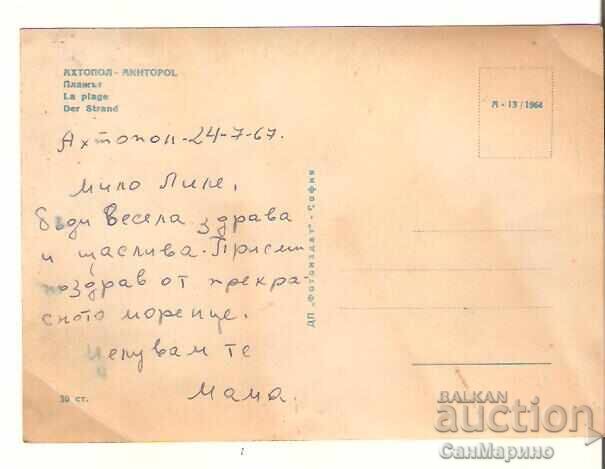 АХТОПОЛ - AKHTOPOL
Плажът
La plage
Der Strand
А - 13 / 1964
Ахтопол - 24-7-67.
Мило Лиле,
бъди весела здрава
и щаслива. Приеми
поздрав от прекра-
сното моренце.
Целувам те
Мама.
ДП „Фотоиздат" - София
30 ст.
BALKAN
auction
СанМарино